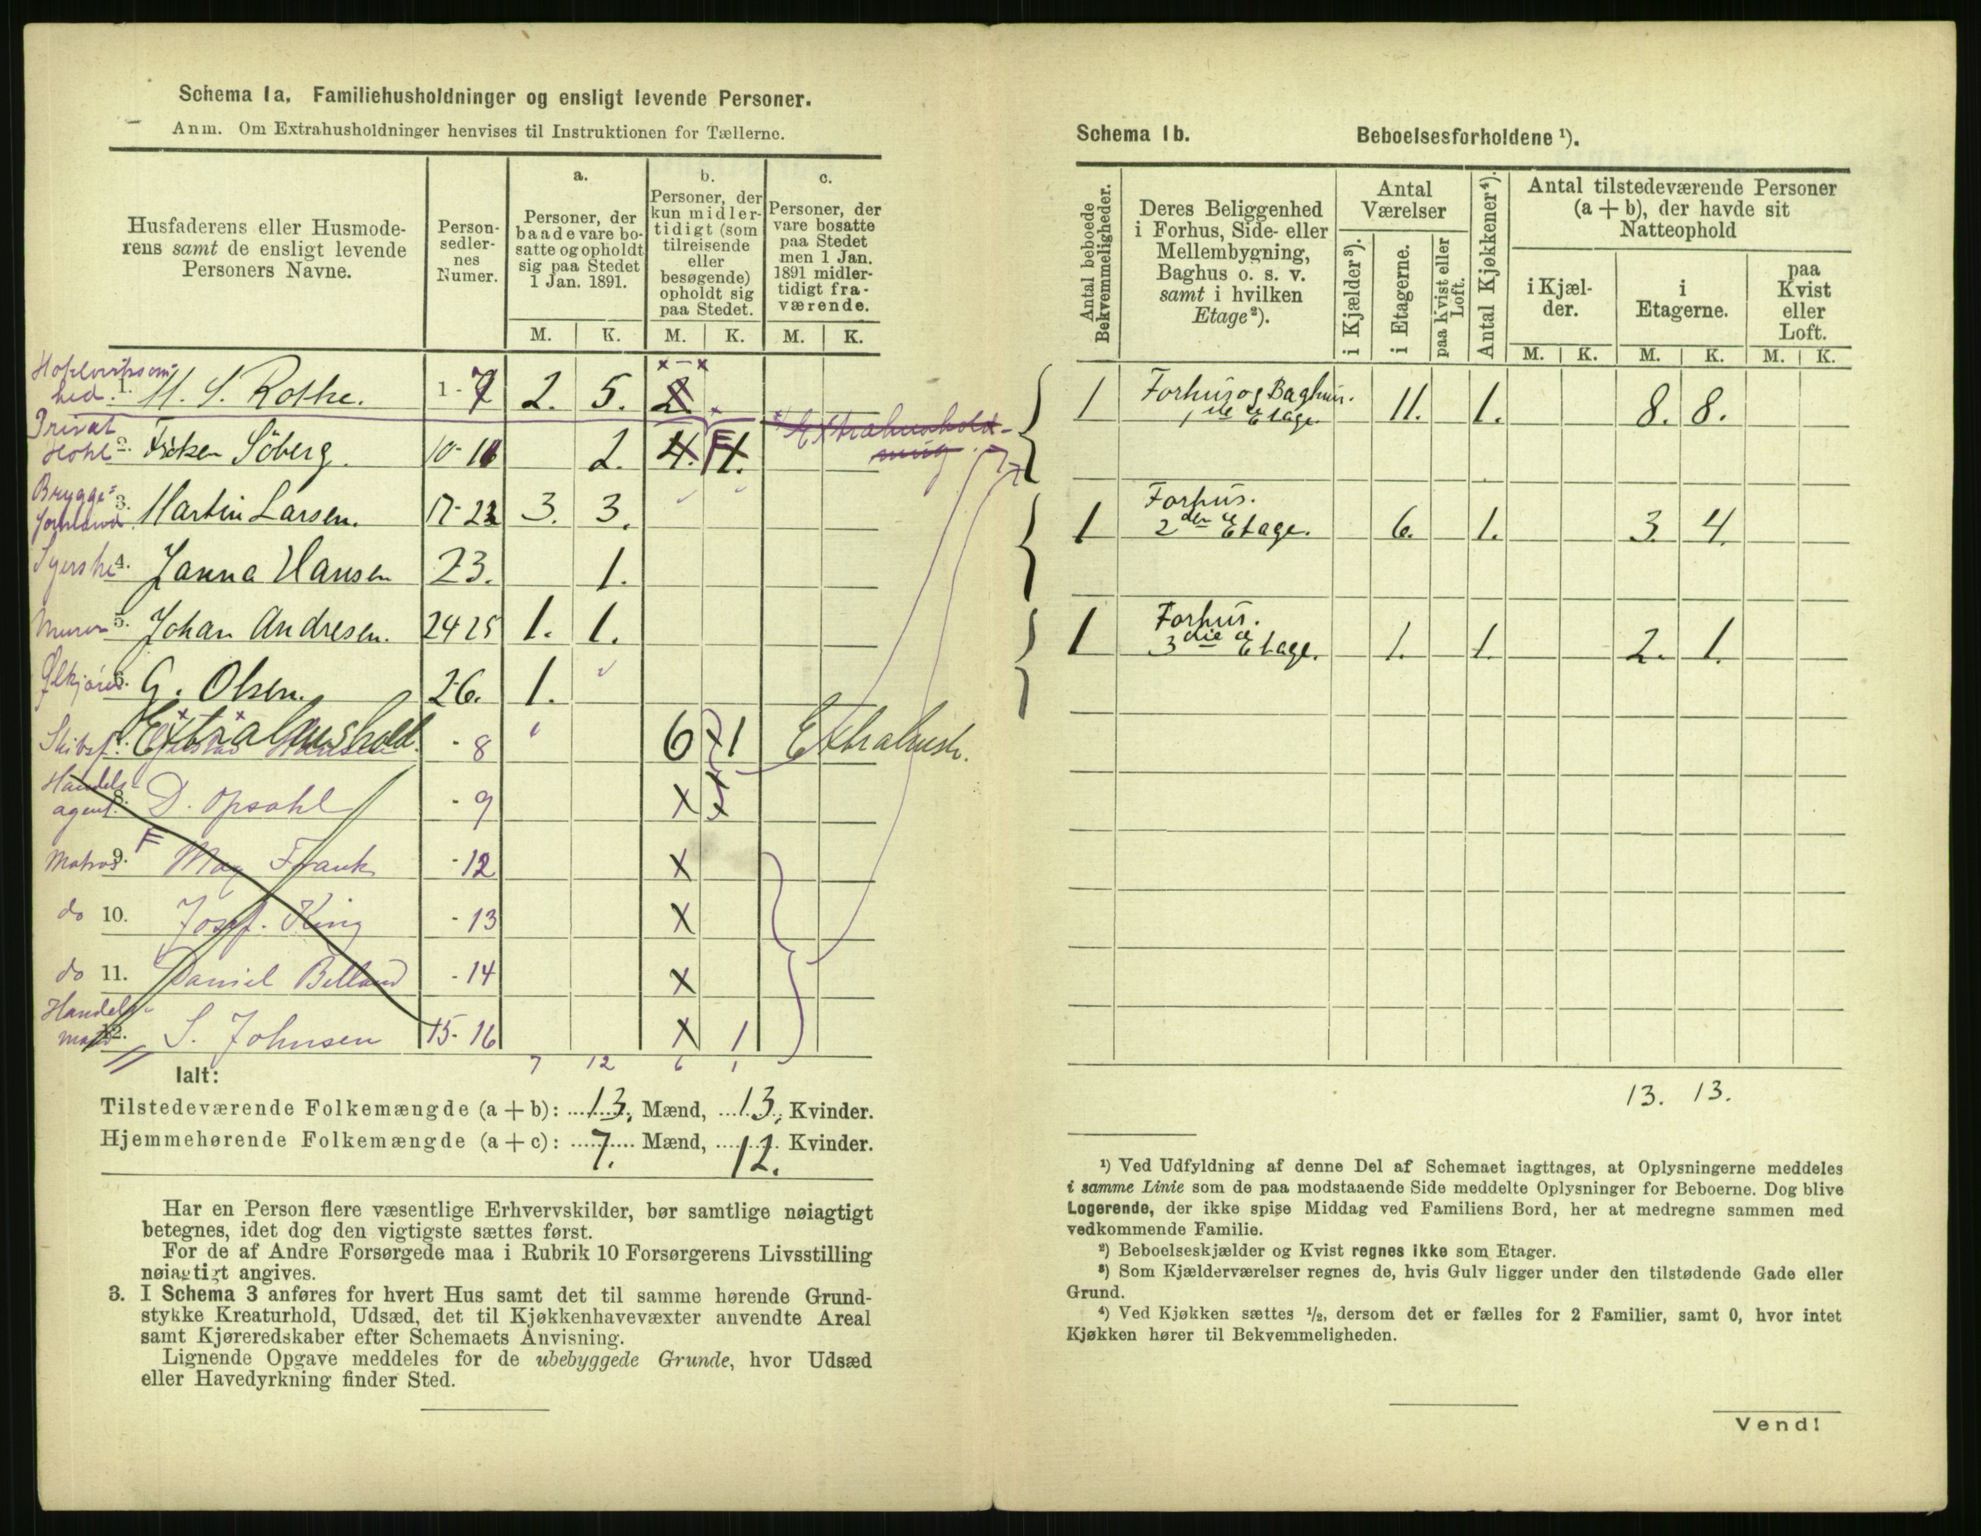 Schema 1a. Familiehusholdninger og ensligt levende Personer.
Anm. Om Extrahusholdninger henvises til Instruktionen for Tællerne.
Husfaderens eller Husmode-
rens samt de ensligt levende
Personers Navne.
Person-
sedler-
nes
Numer.
a.
Personer, der
baade vare bo-
satte og opholdt
sig paa Stedet
1 Jan. 1891.
b.
Personer, der
kun midler-
tidigt (som
tilreisende
eller
besøgende)
opholdt sig
paa Stedet.
c.
Personer, der
vare bosatte
paa Stedet
men 1 Jan.
1891 midler-
tidigt fra-
værende.
M. K. M. K. M. K.
1. Rothe. 1-7 2. 5. 2
Privat
2. Søberg. 10- 2. 4. 1. Extrahushold-
ning
Brygge-
3. Martin Larsen. 17-22 3. 3.
Syerske 4. Janna Hansen 23. 1.
Murer 5. Johan Andresen. 24 25 1. 1.
6. G. Olsen. 26. 1.
Extrahushold. - 8 6 1 Extrahush.
Handels-
agent. 8. D. Opsahl - 9 x x
Matros 9. F Max Frank - 12 x
do 10. Josef. King - 13 x
do 11. Daniel - 14 x
Handels-
12. S. Johnsen 15-16 x 1
7 12 6 1
Ialt:
Tilstedeværende Folkemængde (a + b): 13. Mænd, 13. Kvinder.
Hjemmehørende Folkemængde (a + c): 7. Mænd, 12. Kvinder.
Har en Person flere væsentlige Erhvervskilder, bør samtlige nøiagtigt
betegnes, idet dog den vigtigste sættes først.
For de af Andre Forsørgede maa i Rubrik 10 Forsørgerens Livsstilling
nøiagtigt angives.
3. I Schema 3 anføres for hvert Hus samt det til samme hørende Grund-
stykke Kreaturhold, Udsæd, det til Kjøkkenhavevæxter anvendte Areal
samt Kjøreredskaber efter Schemaets Anvisning.
Lignende Opgave meddeles for de ubebyggede Grunde, hvor Udsæd
eller Havedyrkning finder Sted.
Schema 1b. Beboelsesforholdene ¹).
Antal beboede
Bekvemmeligheder.
Deres Beliggenhed
i Forhus, Side- eller
Mellembygning,
Baghus o. s. v.
samt i hvilken
Etage²).
Antal
Værelser
i Kjælder³).
i Etagerne.
paa Kvist eller
Loft.
Antal Kjøkkener⁴).
Antal tilstedeværende Personer
(a + b), der havde sit
Natteophold
i Kjæl-
der.
i
Etagerne.
paa
Kvist
eller
Loft.
M. K. M. K. M. K.
1 Forhus og Baghus. 11. 1. 8. 8.
1ste Etage.
1 Forhus. 6. 1. 3. 4.
2den Etage.
1 Forhus. 1. 1. 2. 1.
3die Etage.
13. 13.
¹) Ved Udfyldning af denne Del af Schemaet iagttages, at Oplysningerne meddeles
i samme Linie som de paa modstaaende Side meddelte Oplysninger for Beboerne. Dog blive
Logerende, der ikke spise Middag ved Familiens Bord, her at medregne sammen med
vedkommende Familie.
²) Beboelseskjælder og Kvist regnes ikke som Etager.
³) Som Kjælderværelser regnes de, hvis Gulv ligger under den tilstødende Gade eller
Grund.
⁴) Ved Kjøkken sættes ½, dersom det er fælles for 2 Familier, samt 0, hvor intet
Kjøkken hører til Bekvemmeligheden.
Vend!